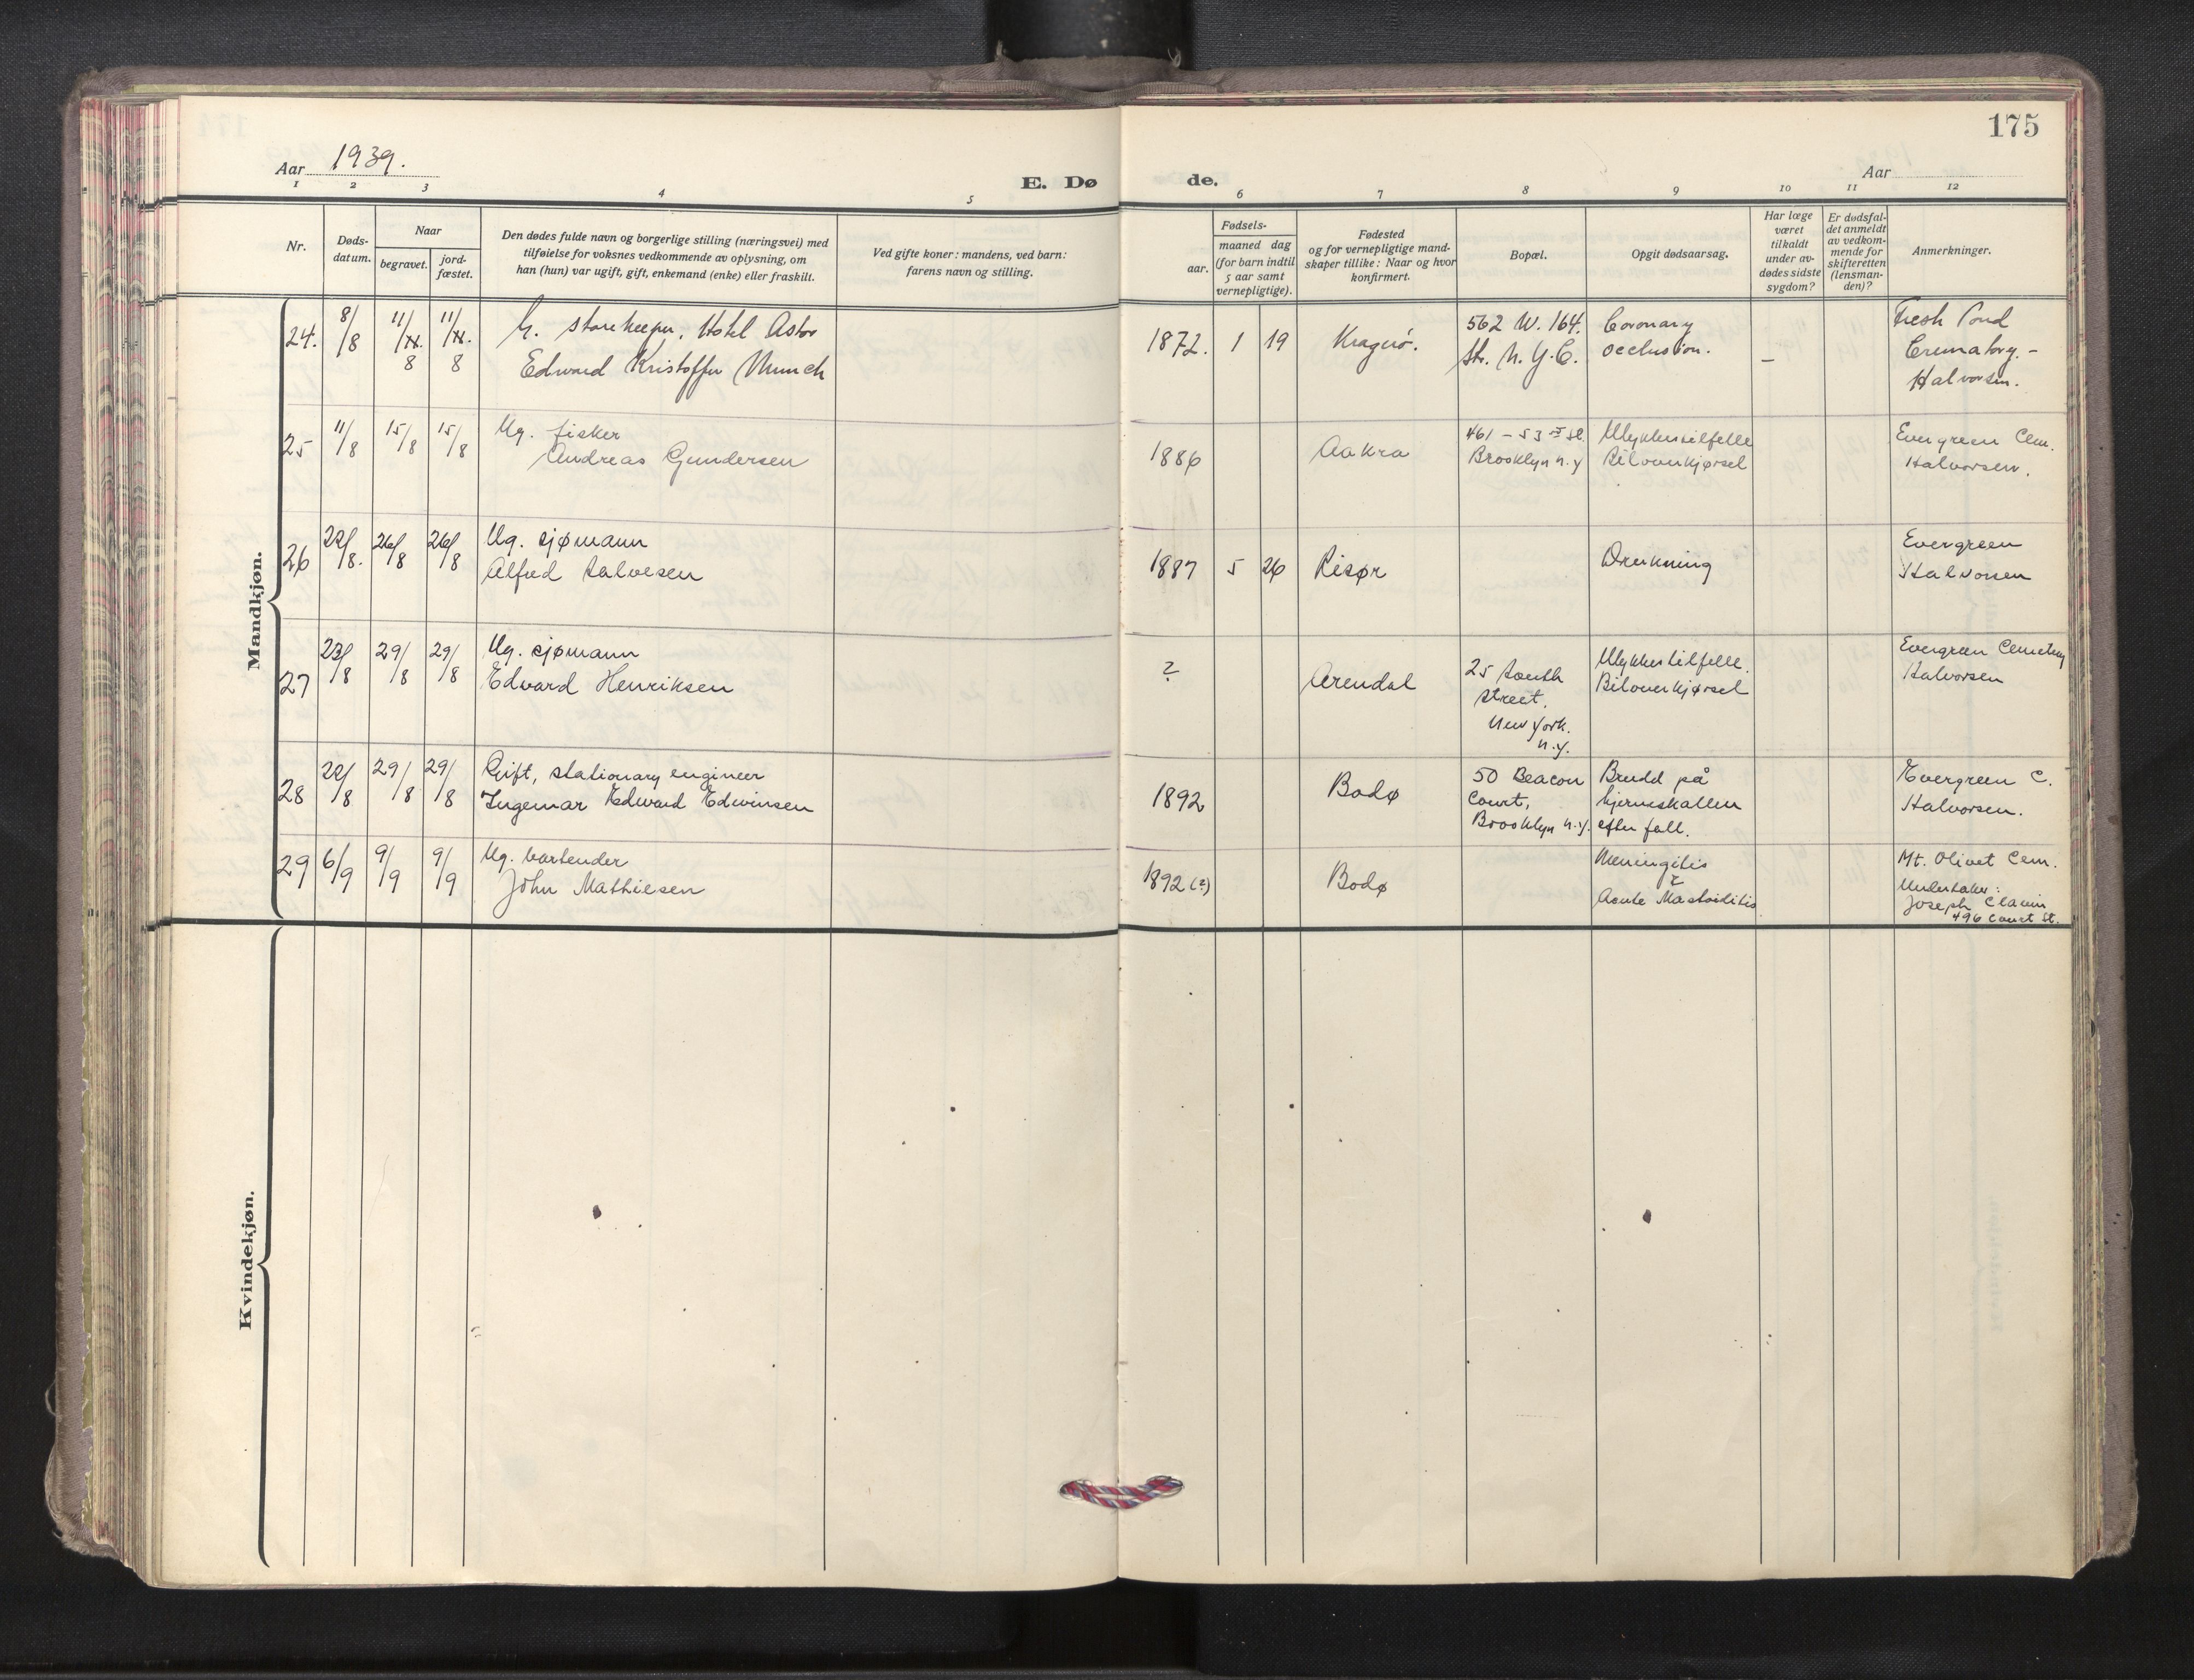 175
Aar 1939.
E. Dø
de.
Aar
1 2 3 4 5 6 7 8 9 10 11 12
Nr.
Døds-
datum.
Naar
begravet.
jord-
fæstet.
Den dødes fulde navn og borgerlige stilling (næringsvei) med
tilføielse for voksnes vedkommende av oplysning, om
han (hun) var ugift, gift, enkemand (enke) eller fraskilt.
Ved gifte koner: mandens, ved barn:
farens navn og stilling.
Fødsels-
aar.
maaned dag
(for barn indtil
5 aar samt
vernepligtige).
Fødested
og for vernepligtige mand-
skaper tillike: Naar og hvor
konfirmert.
Bopæl.
Opgit dødsaarsag.
Har læge
været
tilkaldt
under av-
dødes sidste
sygdom?
Er dødsfal-
det anmeldt
av vedkom-
mende for
skifteretten
(lensman-
den)?
Anmerkninger.
Mandkjøn.
24.
8/8
11/8
11/8
G. storekeeper, Hotel Astor
Edward Kristoffer Munch
1872. 1 19
Kragerö.
562 W. 164.
Str. N. Y. C.
Coronary
occlusion.
–
Fresh Pond
Crematory. -
Halvorsen.
25
11/8
15/8
15/8
Ug. fisker
Andreas Gundersen
1886
Aakra
461 - 53 rd St.
Brooklyn n.y
Ulykkestilfelle
Biloverkjørsel
Evergreen Cem.
Halvorsen.
26
22/8.
26/8
26/8
Ug. sjømann
Alfred Salvesen
1887 5 26
Risør
Drukning
Evergreen
Halvorsen
27
23/8
29/8
29/8
Ug. sjømann
Edvard Henriksen
?
Arendal
25 South
Street,
New York.
n.y.
Ulykkestilfelle.
Biloverkjørsel
Evergreen Cemetery
Halvorsen
28
22/8
29/8
29/8
Gift, stationary engineer
Ingemar Edward Edwinsen
1892
Bodø
50 Beacon
Court,
Brooklyn n.y.
Brudd på
hjerneskallen
efter fall.
Evergreen C.
Halvorsen.
29
6/9
9/9
9/9
Ug. bartender
John Mathiesen
1892 (?)
Bodø
Meningitis
?
Acute Mastoiditis
Mt. Olivet Cem.
Undertaker:
Joseph
496 Court St.
Kvindekjøn.